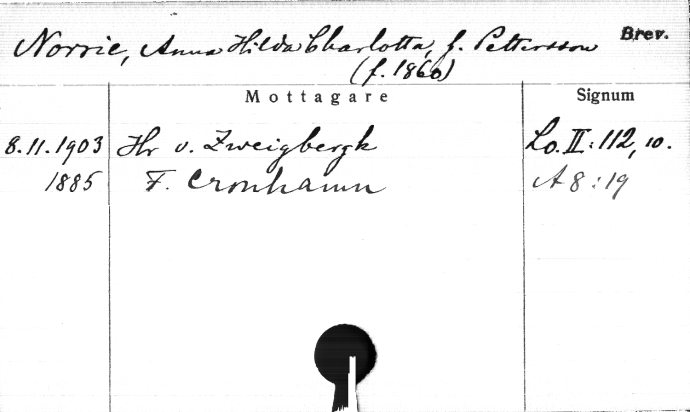 Norrie, Anna Hilda Charlotta, f. Pettersson Brev.
(f. 1860)
Mottagare Signum
8.11.1903 Hr v. Zweigbergk Lo. II: 112, 10.
1885 F. Cronhamn A 8:19